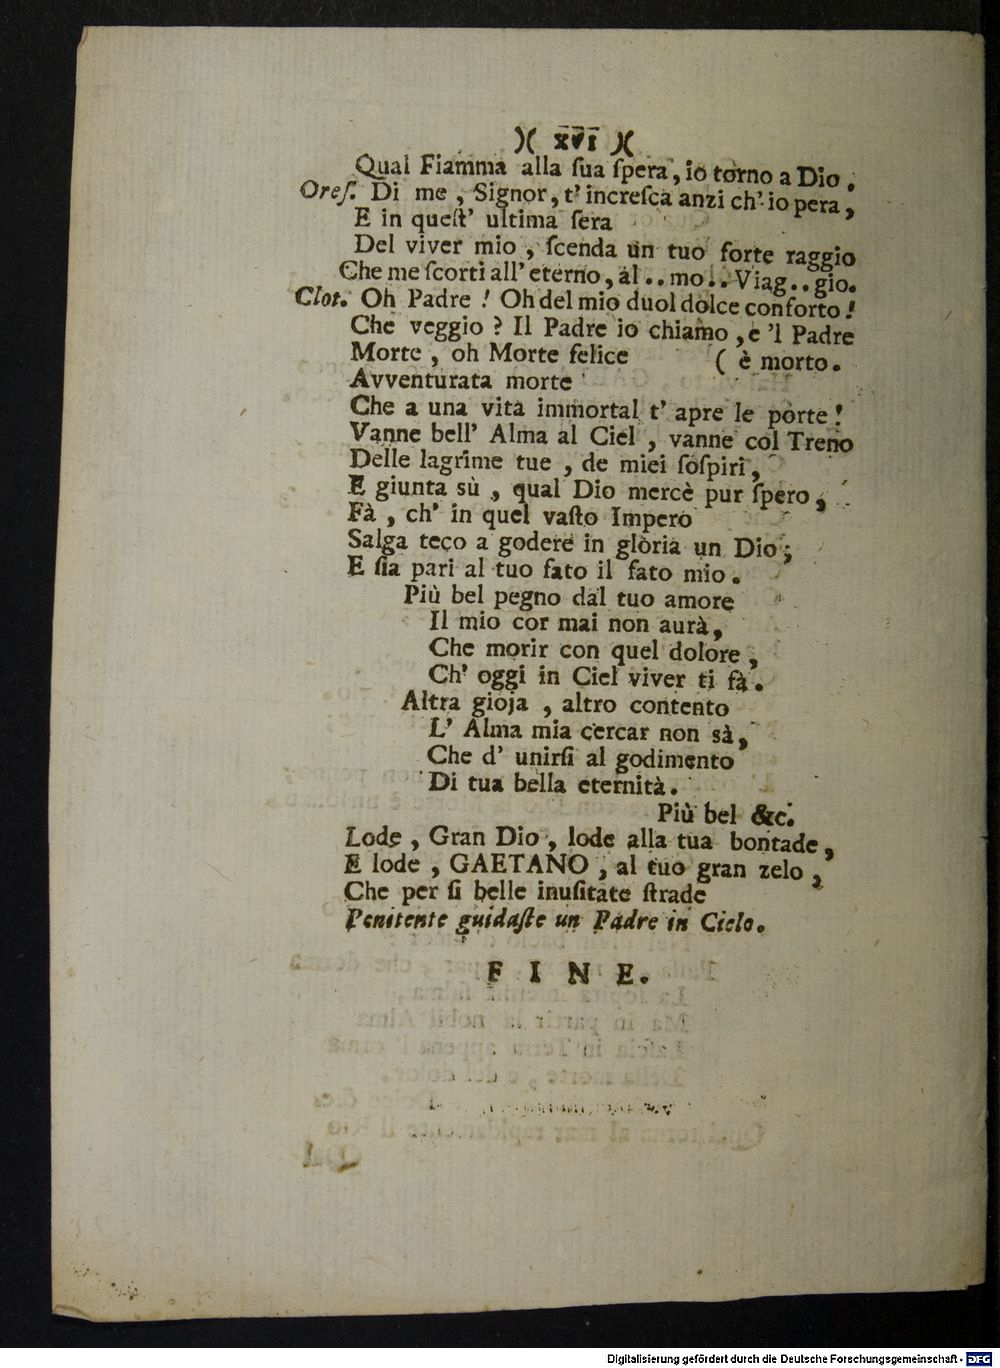 )( XVI )(
Qual Fiamma alla ſua ſpera, io torno a Dio.
Oreſ. Di me, Signor, t' increſca anzi ch' io pera,
E in queſt' ultima ſera
Del viver mio, ſcenda un tuo forte raggio
Che me ſcorti all' eterno, al..mo..Viag..gio.
Clot. Oh Padre! Oh del mio duol dolce conforto!
Che veggio? Il Padre io chiamo, e 'l Padre
Morte, oh Morte felice ( è morto.
Avventurata morte
Che a una vita immortal t' apre le porte!
Vanne bell' Alma al Ciel, vanne col Treno
Delle lagrime tue, de miei ſoſpiri,
E giunta sù, qual Dio mercè pur ſpero,
Fà, ch' in quel vaſto Impero
Salga teco a godere in gloria un Dio;
E ſia pari al tuo fato il fato mio.
Più bel pegno dal tuo amore
Il mio cor mai non aurà,
Che morir con quel dolore,
Ch' oggi in Ciel viver ti fà.
Altra gioja, altro contento
L' Alma mia cercar non sà,
Che d' unirſi al godimento
Di tua bella eternità.
Più bel &c.
Lode, Gran Dio, lode alla tua bontade,
E lode, GAETANO, al tuo gran zelo,
Che per ſi belle inuſitate ſtrade
Penitente guidaſte un Padre in Cielo.
FINE.
Digitalisierung gefördert durch die Deutsche Forschungsgemeinschaft - DFG